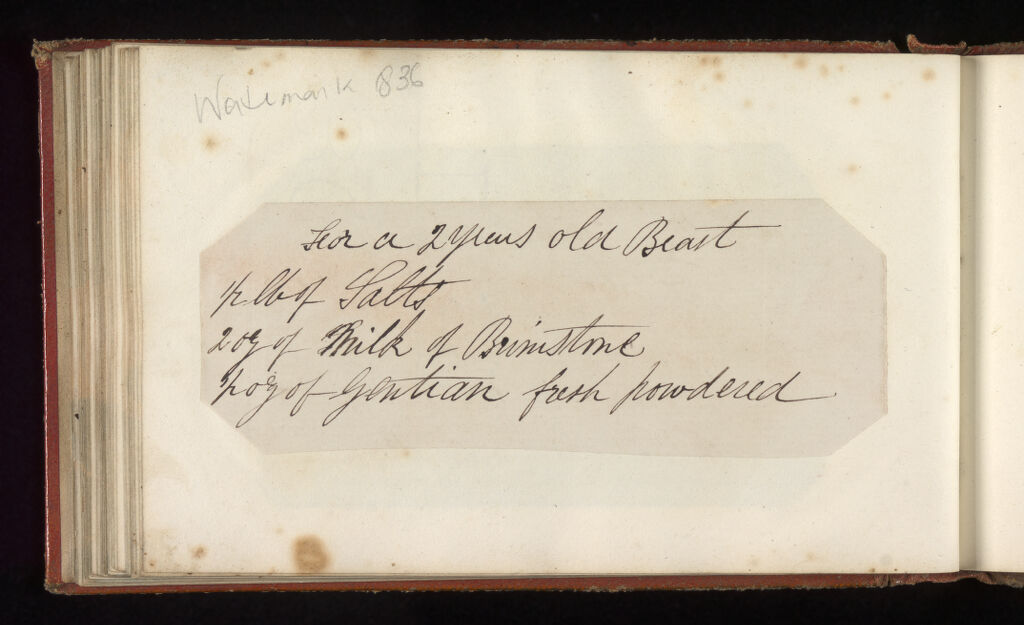 Watermark 836
For a 2 years old Beast
1/2 lb of Salts
2 oz of Milk of Brimstone
1/2 oz of Gentian fresh powdered